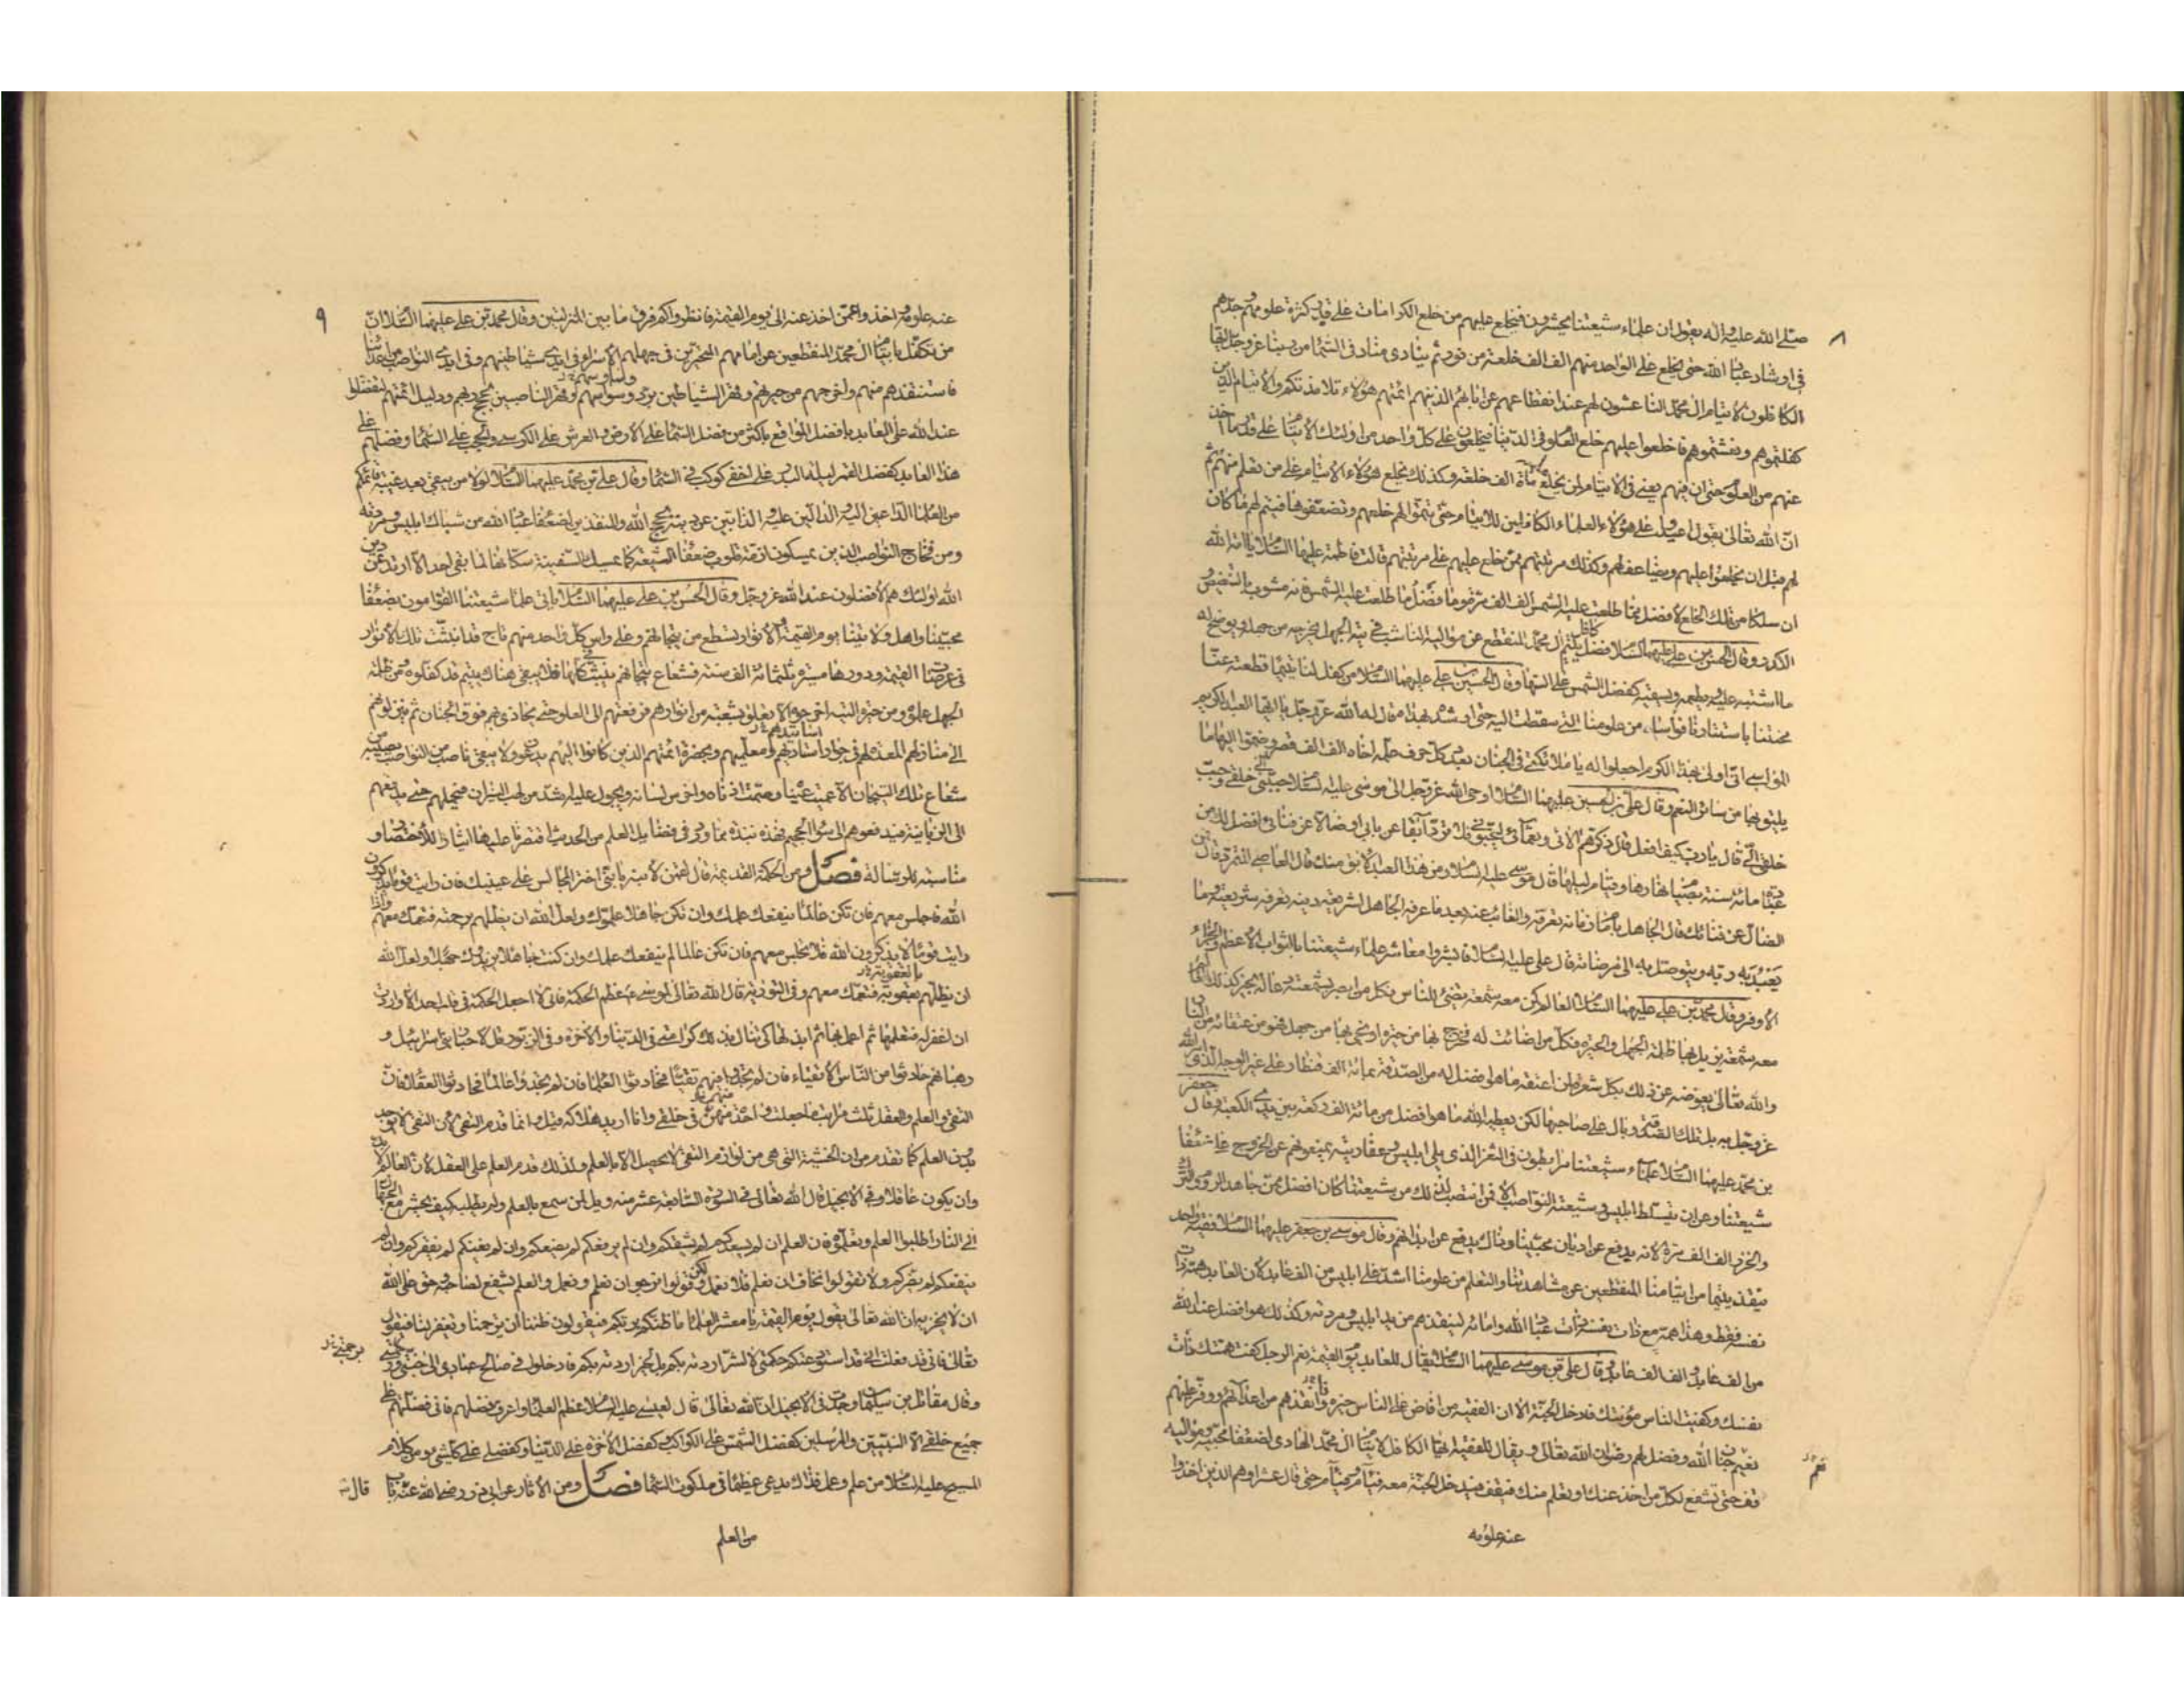 ٨
صلى الله عليه واله يقول ان علماء شيعتنا يحشرون فيخلع عليهم من خلع الكرامات على قدر كثرة علومهم وجدهم
فى ارشاد عباد الله حتى يخلع على الواحد منهم الف الف خلعة من نور ثم ينادى مناد فى السماء من ربنا عز وجل ايها
الكافلون لايتام ال محمد الناعشون لهم عند انقطاعهم عن ابائهم الذين هم ائمتهم هؤلاء تلامذتكم والايتام الذين
كفلتموهم ونعشتموهم فاخلعوا عليهم خلع العلوم فى الدنيا فيخلعون على كل واحد من اولئك الايتام على قدر ما اخذ
عنهم من العلوم حتى ان فيهم يعنى فى الايتام لمن يخلع عليه مائة الف خلعة وكذلك يخلع هؤلاء الايتام على من تعلم منهم ثم
ان الله تعالى يقول اعيدوا على هؤلاء العلماء الكافلين للايتام حتى تتموا لهم خلعهم وتضعفوها فيتم لهم ما كان
لهم قبل ان يخلعوا عليهم ويضاعف لهم وكذلك مرتبتهم ممن خلع عليهم على مرتبتهم قالت فاطمة عليها السلام يا امة الله
ان سلكا من تلك الخلع لافضل مما طلعت عليه الشمس الف الف مرة وما فضل ما طلعت عليه الشمس فانه مشوب بالتنغيص و
الكدر وقال الحسن بن على عليهما السلام فضل كافل يتيم ال محمد المنقطع عن مواليه الناشب فى تيه الجهل يخرجه من جهله ويوضح له
ما اشتبه عليه يطعمه ويسقيه كفضل الشمس على السها وقال الحسين بن على عليهما السلام من كفل لنا يتيما قطعته عنا
محنتنا باستتارنا فواساه من علومنا التى سقطت اليه حتى ارشده بهداه قال له الله عز وجل يا ايها العبد الكريم
المواسى انى اولى بهذا الكرم اجعلوا له يا ملائكتى فى الجنان بعدد كل حرف علمه اياه الف الف قصر وضموا اليها ما
يليق بها من سائر النعم وقال على بن الحسين عليهما السلام اوحى الله عز وجل الى موسى عليه السلام حببنى الى خلقى وحبب
خلقى الى قال يا رب كيف افعل قال ذكرهم الائى ونعمائى ليحبونى فلئن ترد ابقا عن بابى او ضالا عن فنائى افضل لك من
عبادة مائة سنة بصيام نهارها وقيام ليلها قال موسى عليه السلام ومن هذا العبد الابق منك قال العاصى المتمرد قال فمن
الضال عن فنائك قال الجاهل بامام زمانه تعرفه والغائب عنه بعد ما عرفه الجاهل بشريعة دينه تعرفه شريعته وما
يعبد به ربه ويتوصل به الى مرضاته قال على عليه السلام فابشروا معاشر علماء شيعتنا بالثواب الاعظم والجزاء
الاوفر وقال محمد بن على عليهما السلام العالم كمن معه شمعة تضئ للناس فكل من ابصر بشمعته دعا له بخير كذلك العالم
معه شمعة يزيل بها ظلمة الجهل والحيرة فكل من اضائت له فخرج بها من حيرة او نجى بها من جهل فهو من عتقائه من النار
والله تعالى يعوضه عن ذلك بكل شعرة لمن اعتقه ما هو افضل له من الصدقة بمائة الف قنطار على غير الوجه الذى امر الله
عز وجل به بل تلك الصدقة وبال على صاحبها لكن يعطيه الله ما هو افضل من مائة الف ركعة بين يدى الكعبة وقال جعفر
بن محمد عليهما السلام علماء شيعتنا مرابطون فى الثغر الذى يلى ابليس وعفاريته يمنعونهم عن الخروج على ضعفاء
شيعتنا وعن ان يتسلط ابليس وشيعته النواصب الا فمن انتصب لذلك من شيعتنا كان افضل ممن جاهد الروم والترك
والخزر الف الف مرة لانه يدفع عن اديان محبينا وذاك يدفع عن ابدانهم وقال موسى بن جعفر عليهما السلام فقيه واحد
ينقذ يتيما من ايتامنا المنقطعين عن مشاهدتنا والتعلم من علومنا اشد على ابليس من الف عابد لان العابد همه ذات
نفسه فقط وهذا همه مع ذات نفسه ذات عباد الله وامائه لينقذهم من يد ابليس ومردته وكذلك هو افضل عند الله
من الف عابد والف الف عابد وقال على بن موسى عليهما السلام يقال للعابد يوم القيمة نعم الرجل كنت همتك ذات
نفسك وكفيت الناس مؤنتك فادخل الجنة الا ان الفقيه من افاض على الناس خيره وانقذهم من اعدائهم ووفر عليهم
نعيم جنان الله وفضل لهم رضوان الله تعالى ويقال للفقيه يا ايها الكافل لايتام ال محمد الهادى لضعفاء محبيه ومواليه
قف حتى تشفع لكل من اخذ عنك او تعلم منك فيقف فيدخل الجنة معه فئاما وفئاما وفئاما حتى قال عشرا وهم الذين اخذوا
عنه علومه
٩
عنه علومه واخذوا عمن اخذ عنه الى يوم القيمة فانظروا كم فرق ما بين المنزلتين وقال محمد بن على عليهما السلام ان
من تكفل بايتام ال محمد المنقطعين عن امامهم المتحيرين فى جهلهم الاسراء فى ايدى شياطينهم وفى ايدى النواصب من اعدائنا
فاستنقذهم منهم واخرجهم من حيرتهم وقهر الشياطين برد وساوسهم وقهر الناصبين بحجج ربهم ودليل ائمتهم ليفضلوا
عند الله على العابد بافضل المواقع باكثر من فضل السماء على الارض والعرش على الكرسى والحجب على السماء وفضلهم على
هذا العابد كفضل القمر ليلة البدر على اخفى كوكب فى السماء وقال على بن محمد عليهما السلام لولا من يبقى بعد غيبة قائمكم
من العلماء الداعين اليه والدالين عليه والذابين عن دينه بحجج الله والمنقذين لضعفاء عباد الله من شباك ابليس ومردته
ومن فخاخ النواصب الذين يمسكون ازمة قلوب ضعفاء الشيعة كما يمسك السفينة سكانها لما بقى احد الا ارتد عن دين
الله اولئك هم الافضلون عند الله عز وجل وقال الحسن بن على عليهما السلام ياتى علماء شيعتنا القوامون بضعفاء
محبينا واهل ولايتنا يوم القيمة والانوار تسطع من تيجانهم وعلى راس كل واحد منهم تاج قد انبثت تلك الانوار
فى عرصات القيمة ودورها مسيرة ثلثمائة الف سنة فشعاع تيجانهم ينبث فيها كلها فلا يبقى هناك يتيم قد كفلوه من ظلمة
الجهل علموه ومن حيرة التيه اخرجوه الا تعلق بشعبة من انوارهم فرفعتهم الى العلو حتى يحاذى بهم فوق الجنان ثم ينزلونهم
الى منازلهم المعدة لهم فى جوار استاديهم ومعلميهم وبحضرة ائمتهم الذين كانوا اليهم يدعون ولا يبقى ناصب من النواصب يصيبه من
شعاع تلك التيجان الا عميت عيناه وصمت اذناه واخرس لسانه ويحول عليه اشد من لهب النيران فيحملهم حتى يدفعهم
الى الزبانية فيدفعوهم الى سواء الجحيم فهذه نبذة مما ورد فى فضائل العلم من الحديث اقتصرنا عليها ايثارا للاختصار و
مناسبة للرسالة فصل ومن الحكمة القديمة قال لقمن لابنه يا بنى اختر المجالس على عينيك فان رايت قوما يذكرون
الله فاجلس معهم فان تكن عالما ينفعك علمك وان تكن جاهلا علموك ولعل الله ان يظلهم برحمته فتعمك معهم واذا
رايت قوما لا يذكرون الله فلا تجلس معهم فان تكن عالما لم ينفعك علمك وان كنت جاهلا يزيدوك جهلا ولعل الله
ان يظلهم بعقوبة فتعمك معهم وفى التورية قال الله تعالى لموسى عظم الحكمة فانى لا اجعل الحكمة فى قلب احد الا واردت
ان اغفر له فتعلمها ثم اعمل بها ثم ابذلها كى تنال بذلك كرامتى فى الدنيا والاخرة وفى الزبور قل لاحبار بنى اسرائيل و
رهبانهم حادثوا من الناس الاتقياء فان لم تجدوا فيهم تقيا فحادثوا العلماء فان لم تجدوا عالما فحادثوا العقلاء فان
التقى والعلم والعقل ثلث مراتب ما جعلت واحدة منهن فى خلقى وانا اريد هلاكه قيل وانما قدم التقى لان التقى لا يوجد
بدون العلم كما تقدم من ان الخشية التى هى من لوازم التقى لا يحصل الا بالعلم ولذلك قدم العلم على العقل لان العالم لا بد
وان يكون عاقلا وفى الانجيل قال الله تعالى فى السورة السابعة عشر منه ويل لمن سمع بالعلم ولم يطلبه كيف يحشر مع الجهال
الى النار اطلبوا العلم وتعلموه فان العلم ان لم يسعدكم لم يشقكم وان لم يرفعكم لم يضعكم وان لم يغنكم لم يفقركم وان لم
ينفعكم لم يضركم ولا تقولوا نخاف ان نعلم فلا نعمل ولكن قولوا نرجو ان نعلم ونعمل والعلم يشفع لصاحبه وحق على الله
ان لا يخزيه ان الله تعالى يقول يوم القيمة يا معشر العلماء ما ظنكم بربكم فيقولون ظننا ان يرحمنا ويغفر لنا فيقول
تعالى فانى قد فعلت انى قد استودعتكم حكمتى لا لشر اردته بكم بل لخير اردته بكم فادخلوا فى صالح عبادى الى جنتى ورحمتى
وقال مقاتل بن سليمان وجدت فى الانجيل ان الله تعالى قال لعيسى عليه السلام عظم العلماء واعرف فضلهم فانى فضلتهم على
جميع خلقى الا النبيين والمرسلين كفضل الشمس على الكواكب وكفضل الاخرة على الدنيا وكفضلى على كل شئ ومن كلام
المسيح عليه السلام من علم وعمل فذاك يدعى عظيما فى ملكوت السماء فصل ومن الاثار عن ابى ذر رضى الله عنه باب
من العلم